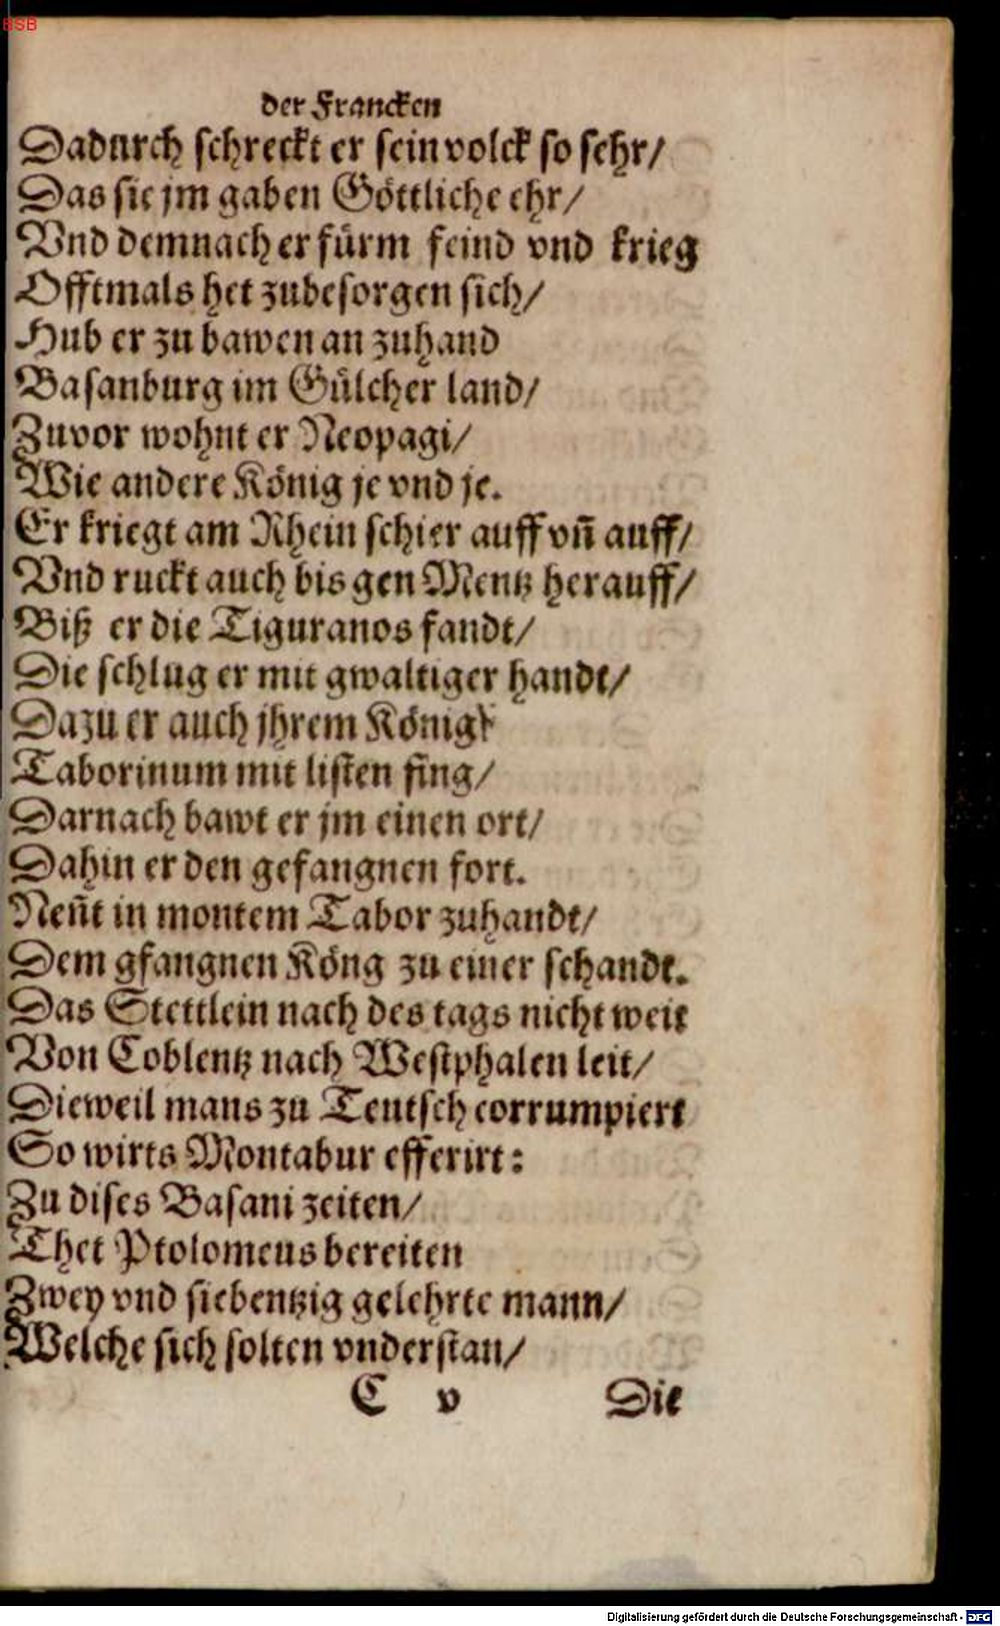 BSB
der Francken
Dadurch schreckt er sein volck so sehr/
Das sie jm gaben Göttliche ehr/
Vnd demnach er fürm feind vnd krieg
Offtmals het zubesorgen sich/
Hub er zu bawen an zuhand
Basanburg im Gülcher land/
Zuvor wohnt er Neopagi/
Wie andere König je vnd je.
Er kriegt am Rhein schier auff vn̄ auff/
Vnd ruckt auch bis gen Mentz herauff/
Biß er die Tiguranos fandt/
Die schlug er mit gwaltiger handt/
Dazu er auch jhrem König
Taborinum mit listen fing/
Darnach bawt er jm einen ort/
Dahin er den gefangnen fort.
Nen̄t in montem Tabor zuhandt/
Dem gfangnen Köng zu einer schandt.
Das Stettlein nach des tags nicht weit
Von Coblentz nach Westphalen leit/
Dieweil mans zu Teutsch corrumpiert
So wirts Montabur efferirt:
Zu dises Basani zeiten/
Thet Ptolomeus bereiten
Zwey vnd siebentzig gelehrte mann/
Welche sich solten vnderstan/
C v Die
Digitalisierung gefördert durch die Deutsche Forschungsgemeinschaft - DFG